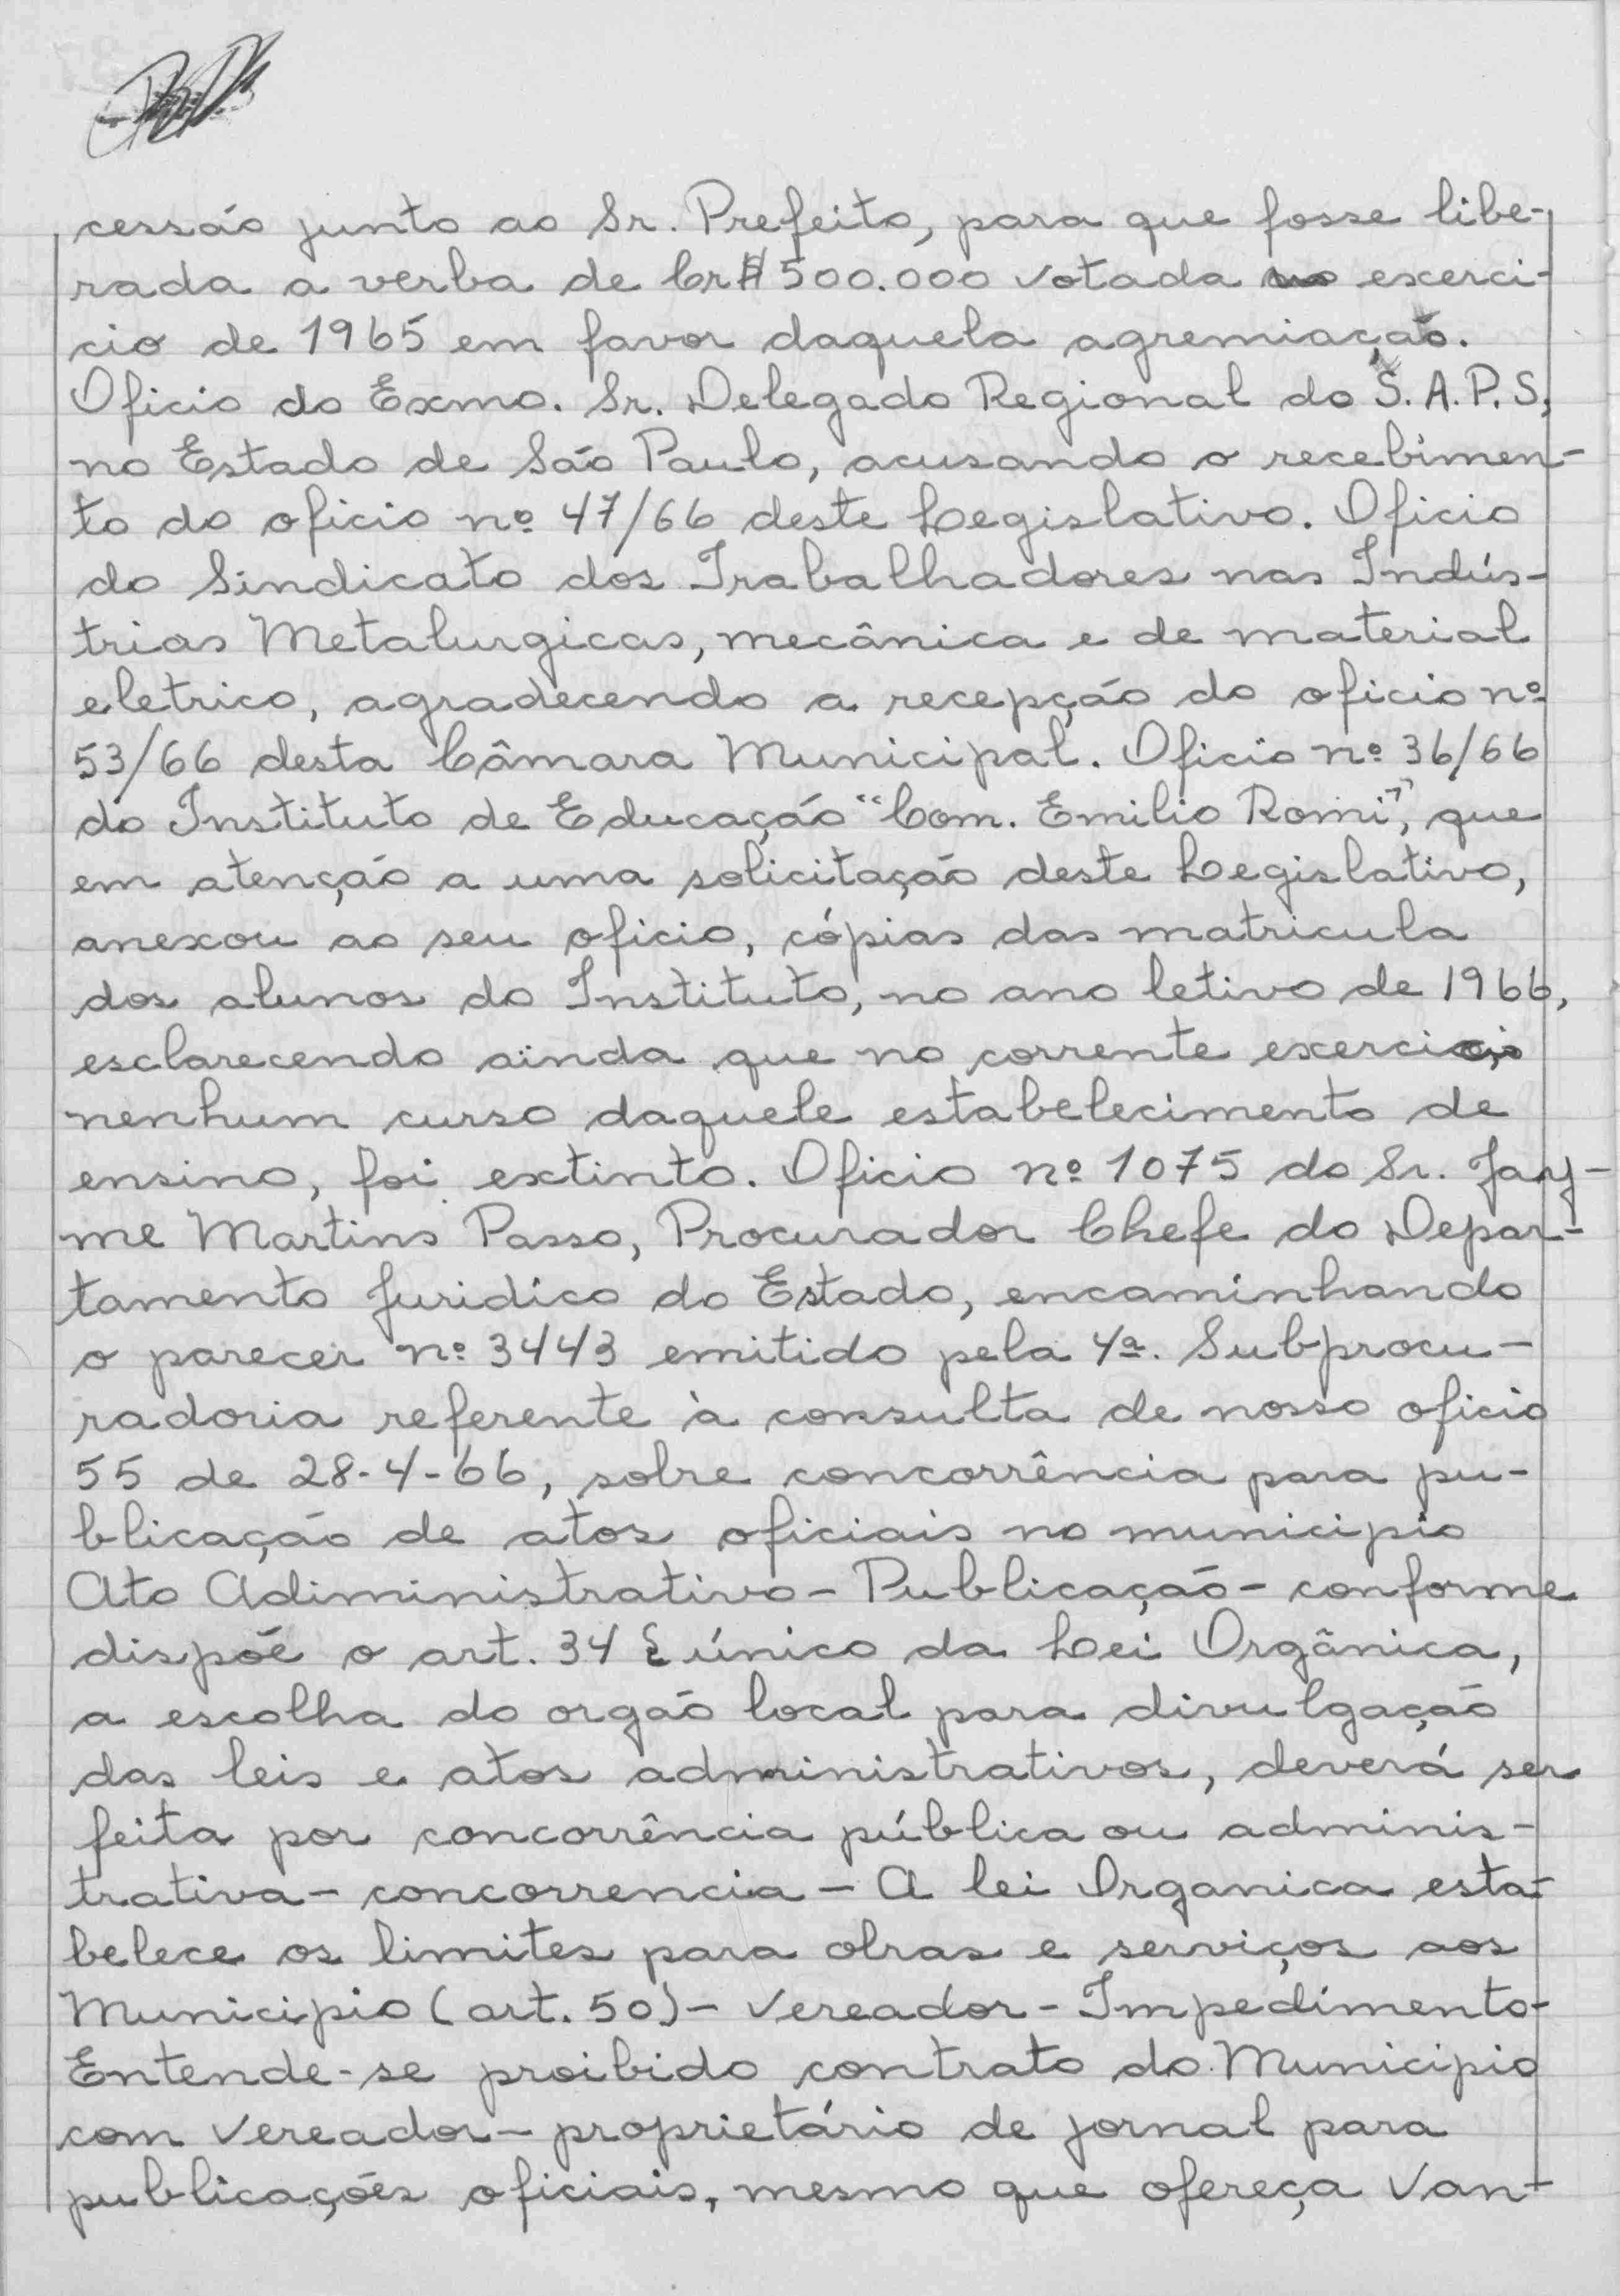 cessão junto ao Sr. Prefeito, para que fosse libe-
rada a verba de Cr$ 500.000 votada no exerci-
cio de 1965 em favor daquela agremiação.
Oficio do Exmo. Sr. Delegado Regional do S.A.P.S,
no Estado de São Paulo, acusando o recebimen-
to do oficio nº 47/66 deste Legislativo. Oficio
do Sindicato dos Trabalhadores nas Indús-
trias Metalurgicas, mecânica e de material
eletrico, agradecendo a recepção do oficio nº
53/66 desta Câmara Municipal. Oficio nº 36/66
do Instituto de Educação "Com. Emilio Romi", que
em atenção a uma solicitação deste Legislativo,
anexou ao seu oficio, cópias das matricula
dos alunos do Instituto, no ano letivo de 1966,
esclarecendo ainda que no corrente exercicio
nenhum curso daquele estabelecimento de
ensino, foi extinto. Oficio nº 1075 do Sr. Jay-
me Martins Passo, Procurador Chefe do Depar-
tamento Juridico do Estado, encaminhando
o parecer nº 3443 emitido pela 4ª. Subprocu-
radoria referente à consulta de nosso oficio
55 de 28-4-66, sobre concorrência para pu-
blicação de atos oficiais no municipio
Ato Adiministrativo - Publicação - conforme
dispõe o art. 34 § único da Lei Orgânica,
a escolha do orgão local para divulgação
das leis e atos administrativos, deverá ser
feita por concorrência pública ou adminis-
trativa - concorrencia - A lei Organica esta-
belece os limites para obras e serviços aos
Municipio (art. 50) - Vereador - Impedimento -
Entende-se proibido contrato do Municipio
com Vereador - proprietário de jornal para
publicações oficiais, mesmo que ofereça Van-